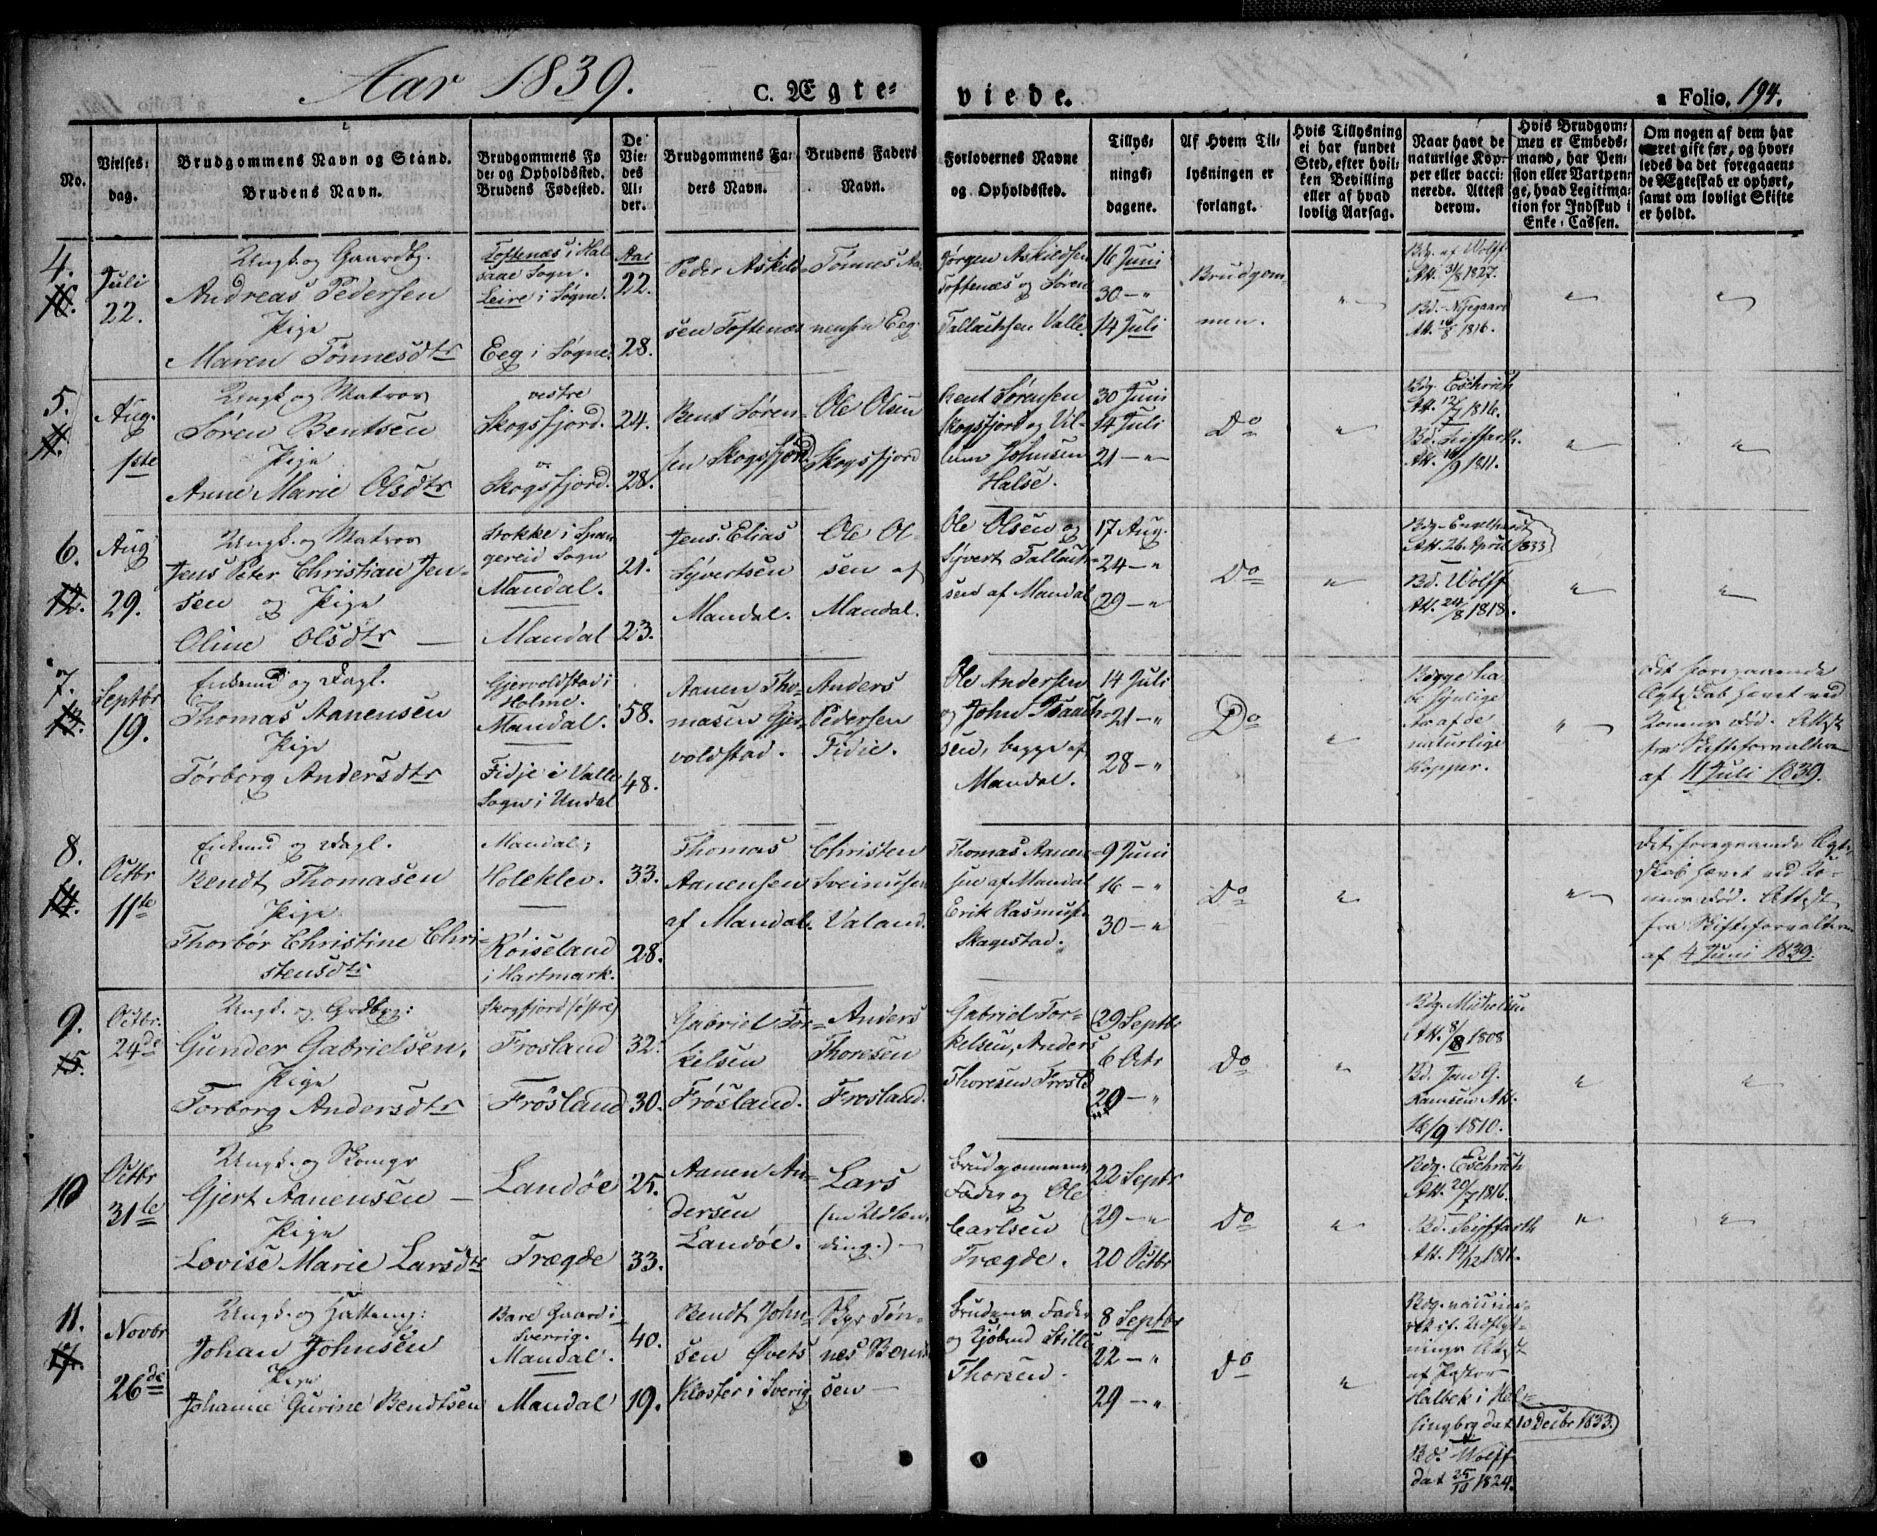 Aar 1839.
C. Ægte-
viede.
a Folio. 194.
No.
Vielses-
dag.
Brudgommens Navn og Stand.
Brudens Navn.
Brudgommens Fø
de- og Opholdssted.
Brudens Fødested.
De
Vie-
des
Al-
der.
Brudgommens Fa-
ders Navn.
Brudens Faders
Navn.
Forlovernes Navne
og Opholdssted.
Tillys-
nings-
dagene.
Af Hvem Til-
lysningen er
forlangt.
Hvis Tillysning
ei har fundet
Sted, efter hvil-
ken Bevilling
eller af hvad
lovlig Aarsag.
Naar havt de
naturlige Kop-
per eller vacci-
nerede. Attest
derom.
Hvis Brudgom-
men er Embeds-
mand, har Pen-
sion eller Vartpen-
ge, hvad Legitima-
tion for Indskud i
Enke-Cassen.
Om nogen af dem har
været gift før, og hvor-
ledes da det foregaaen-
de Ægteskab er ophørt,
samt om lovligt Skifte
er holdt.
4.
Juli
22.
Ungk. og Gaardbr.
Andreas Pedersen
Pige
Maren Tønnesdtr
Toftenæs i Hal-
saae Sogn.
Leire i Søgne.
Eeg i Søgne.
Aar
22.
28.
Peder Askild-
sen Toftenæs
Tønnes Aa-
nensen Eeg.
Jørgen Askildsen
Toftenæs og Søren
Tallachsen Valle.
16 Juni
30 — "
14 Juli
Brudgom-
men.
"
Bdg. af Wolff
Att. 31/8 1827.
Bd. Nyegaard
Att. 8 1816.
"
"
5.
Aug.
1ste
Ungk. og Matros
Søren Bentsen
Pige
Anne Marie Olsdtr
vestre
Skogsfjord.
Skogsfjord.
24.
28.
Bent Søren-
sen Skogsfjord.
Ole Olsen
Skogsfjord
Bent Sørensen
Skogsfjord og Vil-
lum Johnsen
Halse.
30 Juni
14 Juli
21 — "
Do
"
Bdg. Eschrich
Att. 12/7 1816.
Bd. Seiffarth.
Att. 9 1811.
"
"
6.
12.
Aug
29.
Ungk. og Matros
Jens Peter Christian Jen-
sen og Pige
Oline Olsdtr —
Stokke i Span
gereid Sogn
Mandal.
Mandal
21.
23.
Jens Elias
Syvertsen
Mandal.
Ole Ol-
sen af
Mandal.
Ole Olsen og
Syvert Tallach-
sen af Mandal
17 Aug.
24 — "
29 — "
Do
"
Bdg. Engelhardt
Att. 26 April 1833
Bd. Wolff
Att. 24/8 1818.
"
"
7.
Septbr
19.
Enkemd og Dagl.
Thomas Aanensen
Pige
Torborg Andersdtr
Gjervoldstad i
Holme.
Mandal.
Fidje i Valle
Sogn i Undal
58.
48.
Aanen Tho-
masen Gjer-
voldstad.
Anders
Pedersen
Fidie.
Ole Andersen
og John Isaach-
sen, begge af
Mandal.
14 Juli
21 — "
28 — "
Do
"
Begge ha-
be synlige
naturlige
Kopper.
"
Det foregaaende
Ægteskab hævet ved
Konens Død. Attest
fra Skifteforvalteren
af 11 Juli 1839.
8.
14.
Octbr
11te
Enkemd og Dagl.
Bendt Thomasen
Pige
Thorbor Christine Chri-
stensdtr
Mandal;
Holeklev.
Røiseland
i Hartmark.
33.
28.
Thomas
Aanensen
af Mandal.
Christen
Sveinusen
Valand.
Thomas Aanen-
sen af Mandal
Erik Rasmusen
Skagestad.
9 Juni
16 — "
30 — "
Do
"
"
Det foregaaende Ægte-
skab hævet ved Ko-
nens Død. Attest
fra Skifteforvalteren
af 4 Juni 1839.
9.
15.
Octbr.
24de
Ungk. og Grdbrg:
Gunder Gabrielsen.
Pige
Torborg Andersdtr
Skogfjord (østre)
Frosland
Frøsland
32.
30.
Gabriel Tor-
kelsen
Frøsland.
Anders
Thoresen
Frosland.
Gabriel Tor-
kelsen, Anders
Thoresen Frosld
29 Septbr
6 Octr
20 — "
Do
"
Bdg. Michelsen
Att. 8/8 1808
Bd. Jom G.
Ramsen Att.
9 1810.
"
"
10
Octbr
31te
Ungk. og
Gjert Aanensen —
Pige
Lovise Marie Larsdtr
Landøe
Trægde
25.
33.
Aanen An-
dersen
Landøe.
Lars
(en Udlæn-
ding.) —
Brudgommens
Fader og Ole
Carlsen
Trægde.
22 Septbr
29 — "
20 Octbr
Do
"
Bdg. Eschrich
Att. 20/7 1816.
Bd. Seyffarth
Att. 12 1811.
"
"
11.
17.
Novbr
26de
Ungk. og Hattemg:
Johan Johnsen
Pige
Johanne Gurine Bendtsen
Bare Gaard i
Sverrig.
Mandal.
Mandal
40.
19.
Bendt John-
sen Øvets
Kloster i Sverig
Byr Tøn-
nes Bendt-
sen —
Brudens Fader
og Kjøbmd Stille
Thorsen.
8 Septbr
22 — "
29 — "
Do
"
Bdg. vaccine-
ret if. Udflyt-
nings Attest
af Pastor
Halbek i Hel-
singbrg dat 10 Decbr 1833.
Bd. Wolff
dat 25/10 1824.